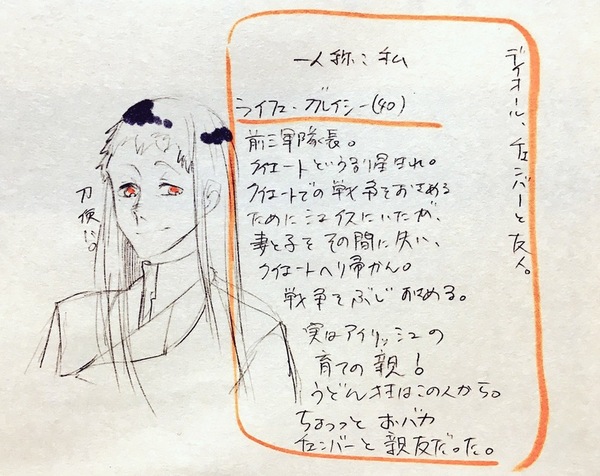 一人称：私
ライフェ・グレイシー(40)
前三軍隊長。
クイエートという別星生まれ。
クイエートでの戦争をおさめる
ためにシュイスにいたが、
妻と子をその間に失い、
クイエートへ帰かん。
戦争をぶじおさめる。
実はアイリッシュの
育ての親!
うどん好きはこの人から。
ちょっっとおバカ
チェンバーと親友だった。
ディオール、チェンバーと友人。
刀使い。